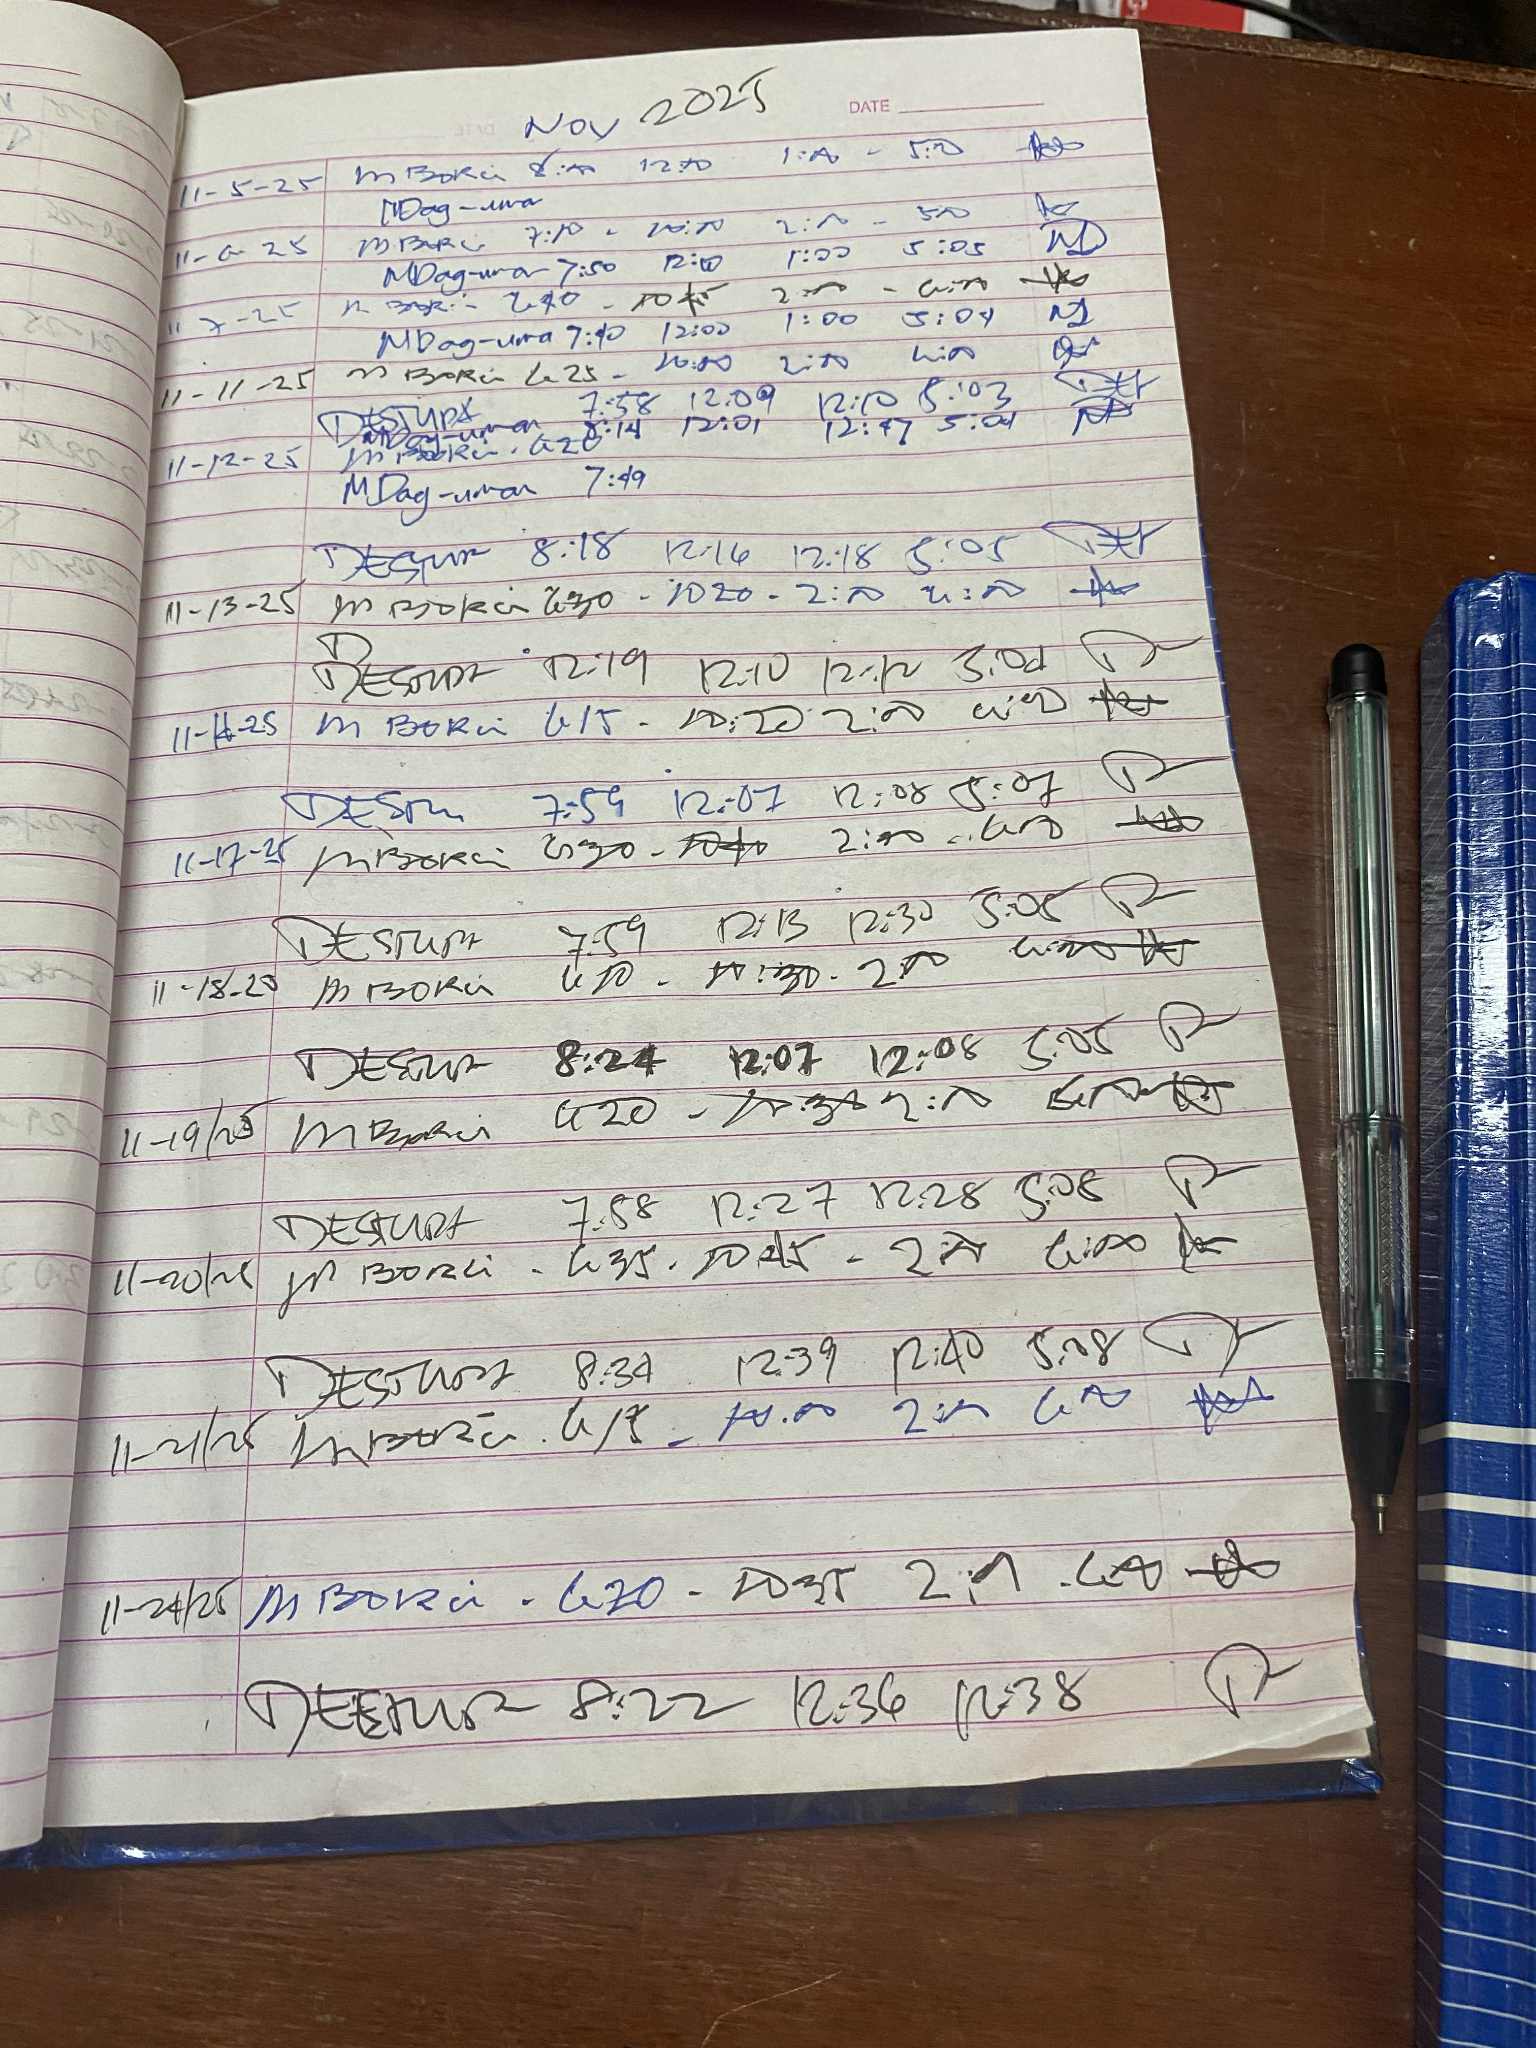 NOV 2025 DATE
11-5-25 M Borci 8:00 12:00 1:00 - 5:00
MDag-uman
11-6-25 M Borci 7:10 - 10:00 2:00 - 5:00
MDag-uman 7:50 12:00 1:00 5:05 MD
11-7-25 M Borci 6:40 - 10:45 2:00 - 6:00
MDag-uman 7:40 12:00 1:00 5:04 MD
11-11-25 M Borci 6:25 - 10:00 2:00 6:00
DESTURA 7:58 12:09 12:10 5:03
MDag-uman 8:14 12:01 12:47 5:04
11-12-25 M Borci - 620
MDag-uman 7:49
DESTURA 8:18 12:16 12:18 5:05
11-13-25 M Borci 630 - 1020 - 2:00 6:00
D
DESTURA 12:19 12:10 12:12 5:04
11-14-25 M Borci 615 - 10:20 2:00 6:00
DESTU 7:59 12:07 12:08 5:07
11-17-25 M Borci 630 - 1040 2:00 - 600
DESTURA 7:59 12:13 12:30 5:05
11-18-25 M Borci 620 - 10:30 - 200
DESTURA 8:24 12:07 12:08 5:05
11-19/25 M Borci 620 - 10:30 2:00
DESTURA 7:58 12:27 12:28 5:08
11-20/25 M Borci - 635 - 1045 - 2:00 6:00
DESTURA 8:34 12:39 12:40 5:08
11-21/25 M Borci - 615 - 10:00 2:00 600
11-24/25 M Borci - 620 - 1035 2:00 - 600
DESTURA 8:22 12:36 12:38